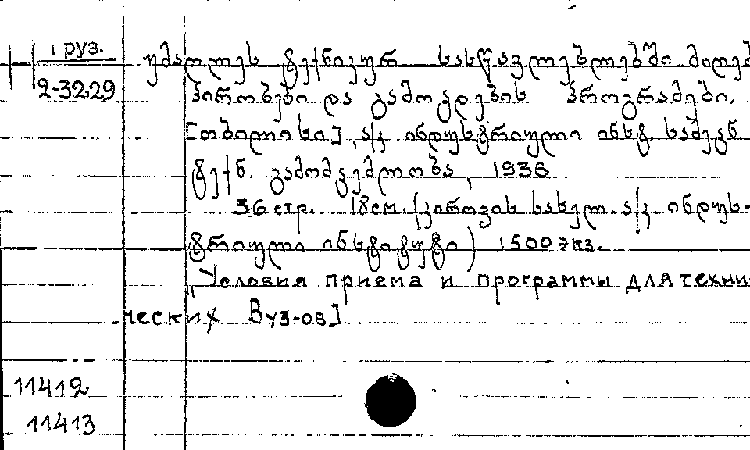 1 груз.
2-3229
უმაღლეს ტექნიკურ სასწავლებლებში მიღებ
პირობები და გამოცდების პროგრამები.
[თბილისი], ა/კ ინდუსტრიული ინსტ. სამეცნ
ტექნ. გამომცემლობა, 1936
36 стр. 18 см. (კიროვის სახელ. ა/კ ინდუს-
ტრიული ინსტიტუტი) 1500 экз.
[Условия приема и программы для техни
ческих Вуз-ов]
11412
11413